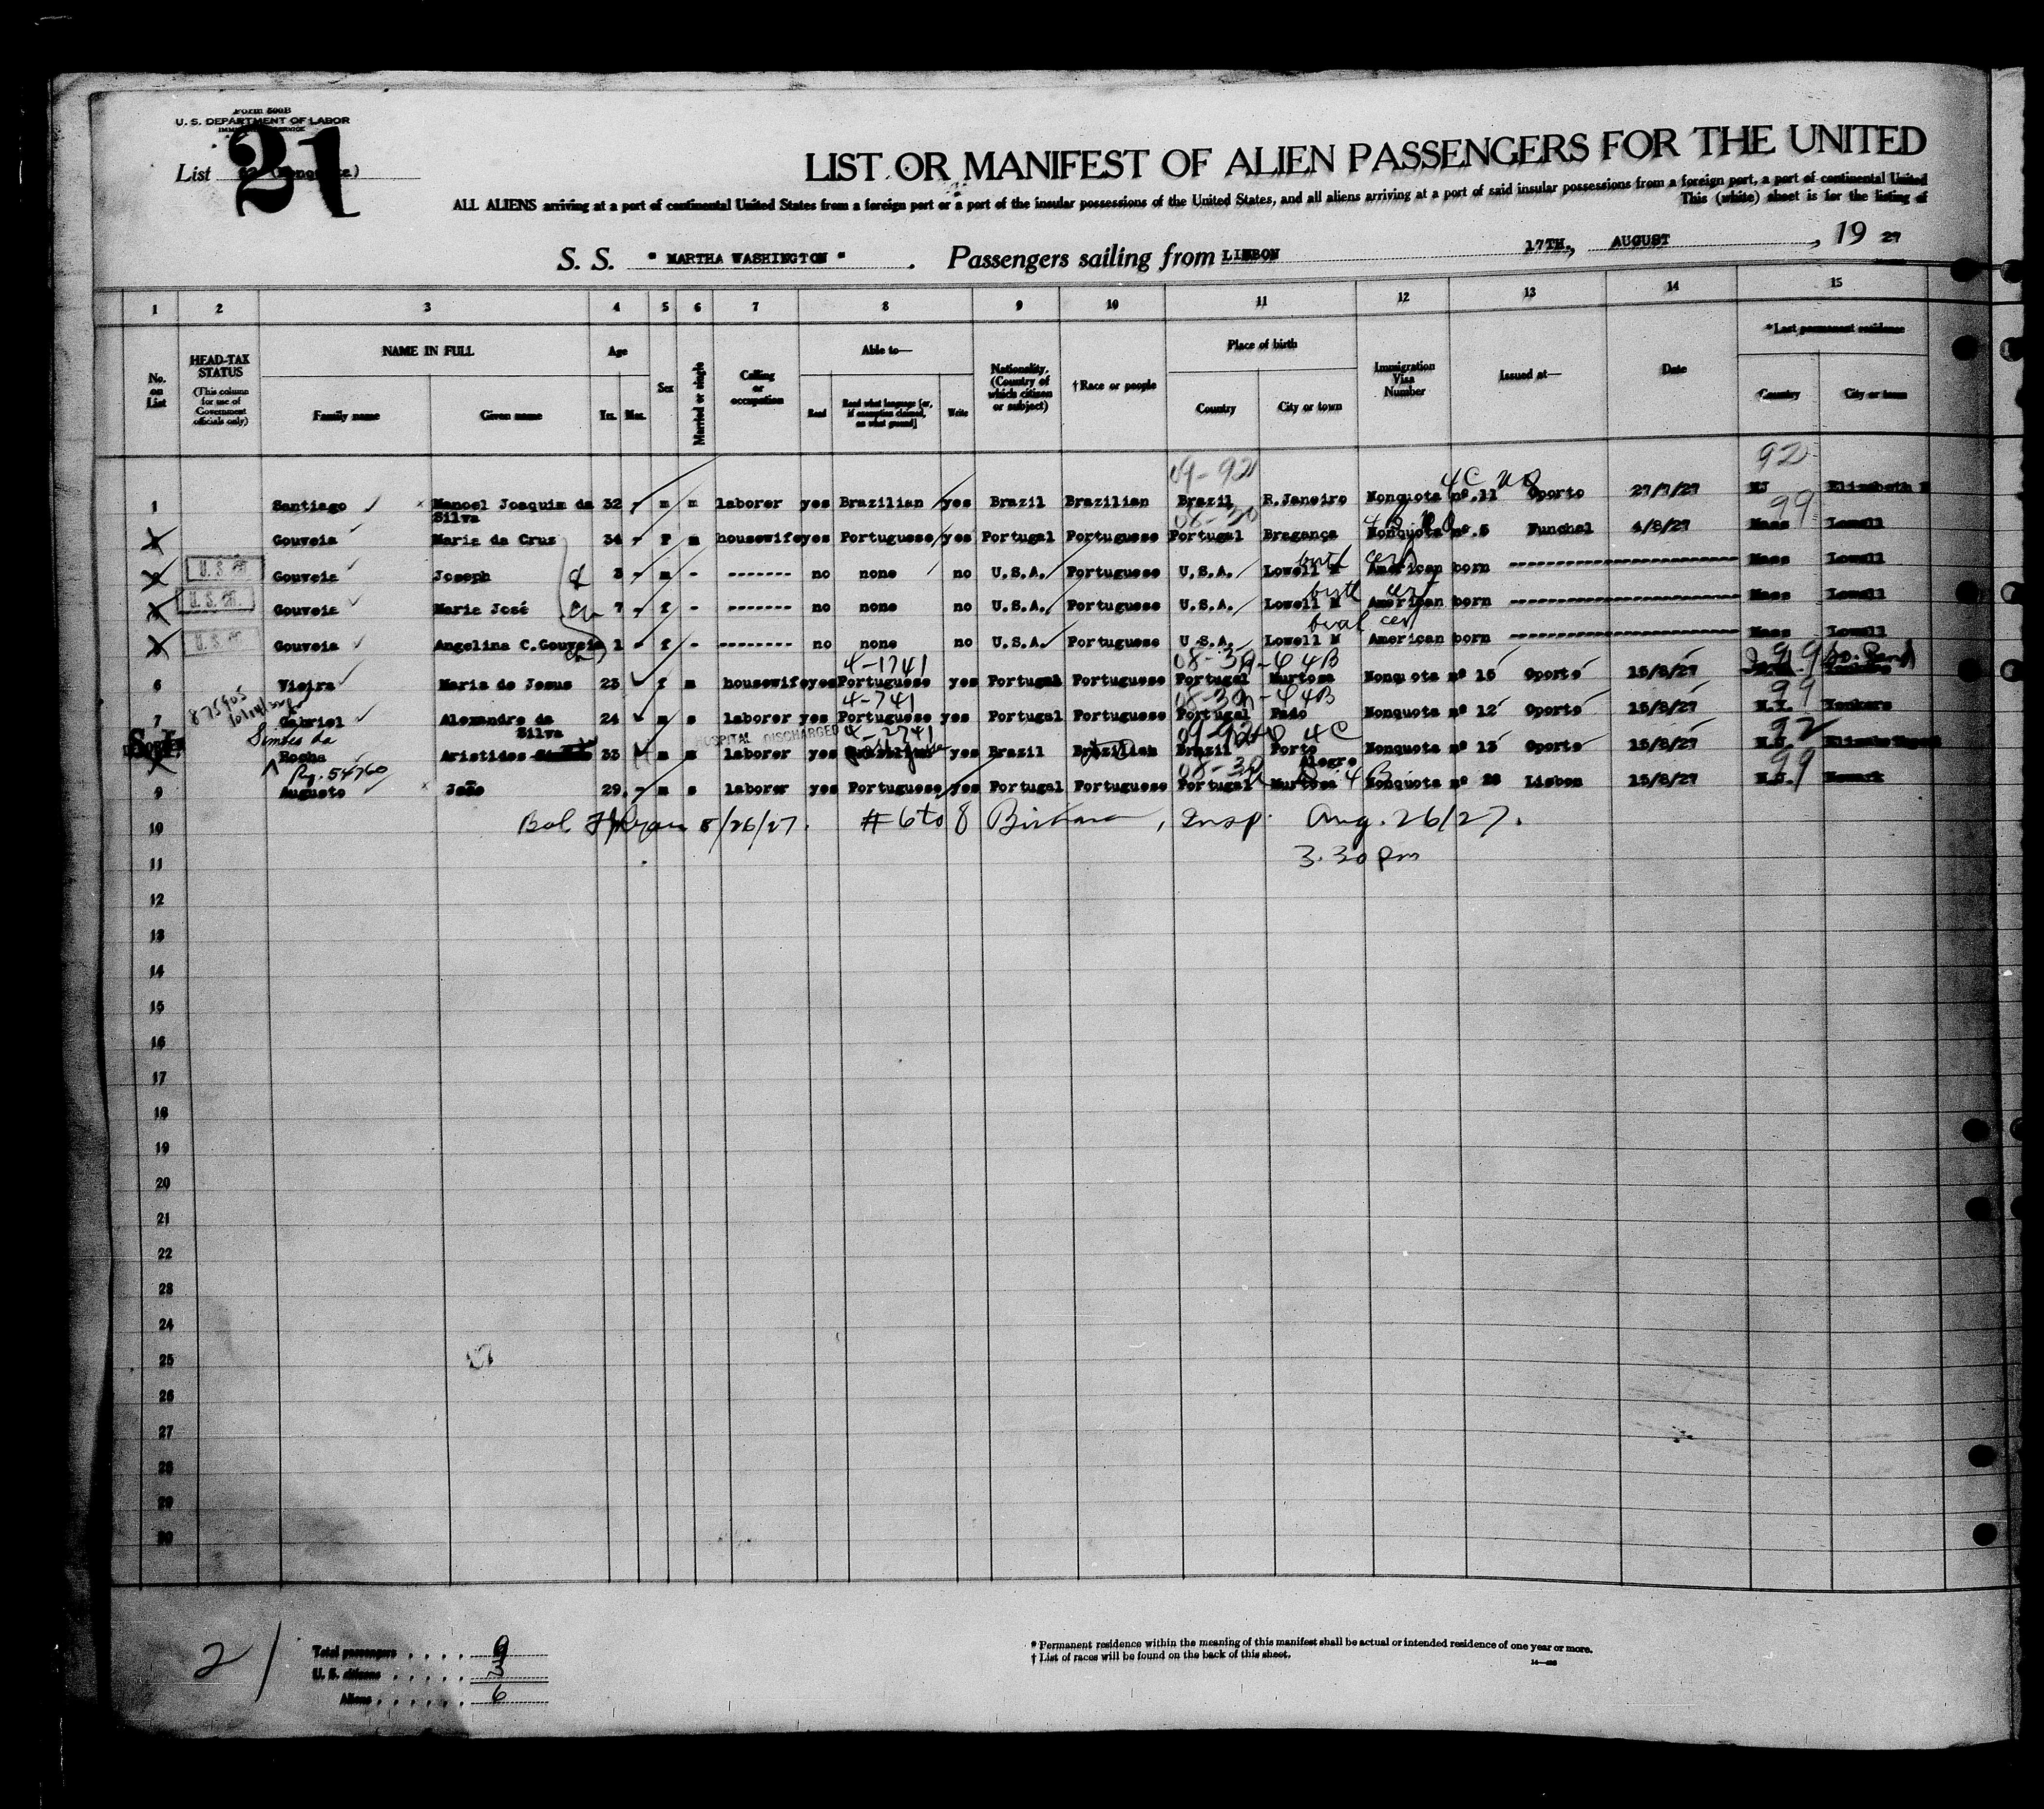 Form 500B
U. S. DEPARTMENT OF LABOR
IMMIGRATION SERVICE
List 21
LIST OR MANIFEST OF ALIEN PASSENGERS FOR THE UNITED
ALL ALIENS arriving at a port of continental United States from a foreign port or a port of the insular possessions of the United States, and all aliens arriving at a port of said insular possessions from a foreign port, a port of continental United
This (white) sheet is for the listing of
S. S. " MARTHA WASHINGTON " . Passengers sailing from LISBON 17TH., AUGUST , 19 27
1 2 3 4 5 6 7 8 9 10 11 12 13 14 15
No. on List HEAD-TAX STATUS (This column for use of Government officials only) NAME IN FULL Family name Given name Age Yrs. Mos. Sex Married or single Calling or occupation Able to— Read Read what language [or, if exemption claimed, on what ground] Write Nationality. (Country of which citizen or subject) †Race or people Place of birth Country City or town Immigration Visa Number Issued at— Date *Last permanent residence Country City or town
09-92 92
4C
1 Santiago Manoel Joaquim da Silva 32 - m m laborer yes Brazilian yes Brazil Brazilian Brazil R.Janeiro Nonquota nº.11 Oporto 27/7/27 NJ Elizabeth
08-30 99
Gouveia Maria da Cruz 34 - f m housewife yes Portuguese yes Portugal Portuguese Portugal Bragança Nonquota nº.5 Funchal 4/8/27 Mass Lowell
birth cert
U. S. Gouveia Joseph 3 - m - ------- no none no U.S.A. Portuguese U.S.A. Lowell M American born ---------- Mass Lowell
birth cert
U. S. Gouveia Marie José 7 - f - ------- no none no U.S.A. Portuguese U.S.A. Lowell M American born ---------- Mass Lowell
cert
U. S. Gouveia Angelina C.Gouveia 1 - f - -------- no none no U.S.A. Portuguese U.S.A. Lowell M American born ---------- Mass Lowell
4-1741 08-30 4B 99
6 Vieira Maria de Jesus 23 f m housewife yes Portuguese yes Portugal Portuguese Portugal Murtosa Nonquota nº 15 Oporto 15/8/27
875905 4-741 08-30 4B 99
7 Gabriel Alexandre da Silva 24 m s laborer yes Portuguese yes Portugal Portuguese Portugal Fado Nonquota nº 12 Oporto 15/8/27 N.Y. Yonkers
S.I. Simões da HOSPITAL DISCHARGED 4-2741 4C 92
Rocha Aristides 33 m m laborer yes yes Brazil Brazilian Brazil Porto Alegre Nonquota nº 13 Oporto 15/8/27 N.J.
54760 08-30 4B 99
9 Augusto João 29. - m s laborer yes Portuguese yes Portugal Portuguese Portugal Murtosa Nonquota nº 28 Lisbon 15/8/27 N.J. Newark
10 Bal 8/26/27. #6 to 8 , Insp. Aug. 26/27.
11 3.30 pm
12
13
14
15
16
17
18
19
20
21
22
23
24
25
26
27
28
29
30
21
Total passengers . . . . 9
U. S. citizens . . . . . 3
Aliens . . . . . . 6
* Permanent residence within the meaning of this manifest shall be actual or intended residence of one year or more.
† List of races will be found on the back of this sheet.